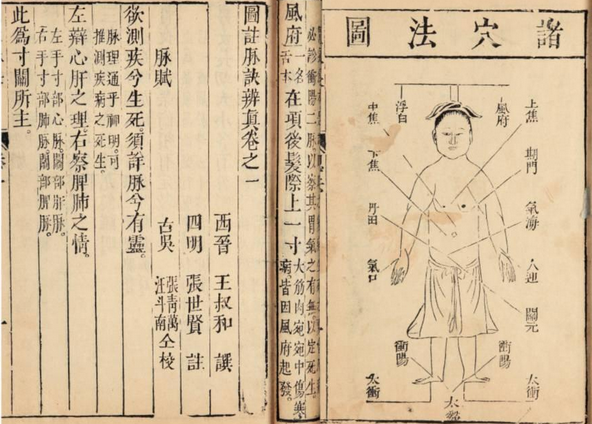 諸穴法圖
上焦
期門
氣海
人迎
關元
風府
浮白
中焦
下焦
丹田
氣口
衝陽
太衝
衝陽
太衝
診衝陽二脉以察其胃氣之有無以定死生。
風府一名舌本在項後髮際上一寸大筋肉宛宛中傷寒病皆因風府起發。
圖註脉訣辨真卷之一
西晉 王叔和 譔
四明 張世賢 註
古吳 張青萬 汪斗南 仝校
脉賦
欲測疾兮生死。須詳脉兮有靈。
脉理通乎神明。可
推測疾病之死生。
左辯心肝之理。右察脾肺之情。
左手寸部心脉。關部肝脉。
右手寸部肺脉。關部脾脉。
此為寸關所主。